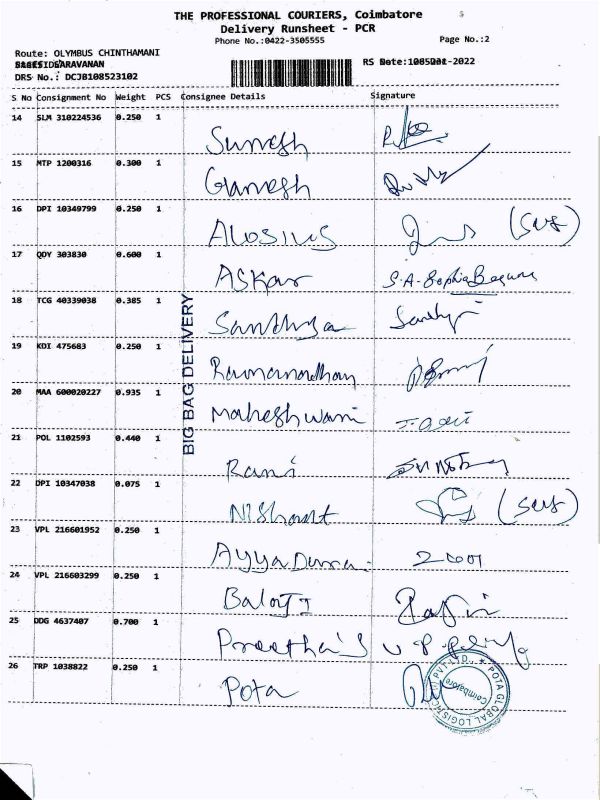 THE PROFESSIONAL COURIERS, Coimbatore
Delivery Runsheet - PCR
Phone No.:0422-3505555 Page No.:2
Route: OLYMBUS CHINTHAMANI
SARAVANAN RS Date:
DRS No.: DCJB108523102
S No Consignment No Weight PCS Consignee Details Signature
14 SLM 310224536 0.250 1 Surresh
15 MTP 1200316 0.300 1 Ganesh
16 DPI 10349799 0.250 1 Alosius
17 QDY 303830 0.600 1 Askar S.A. Sophia Begum
18 TCG 40339038 0.385 1 Sandhya Sandhya
19 KDI 475683 0.250 1
20 MAA 600020227 0.935 1 Maheshwari
21 POL 1102593 0.440 1 Rani
22 DPI 10347038 0.075 1 Nishant
23 VPL 216601952 0.250 1 Ayya Durai
24 VPL 216603299 0.250 1 Balaji
25 DDG 4637407 0.700 1 Preetha's
26 TRP 1038822 0.250 1 Pota
BIG BAG DELIVERY
POTA GLOBAL LOGISTICS PVT LTD.
Coimbatore